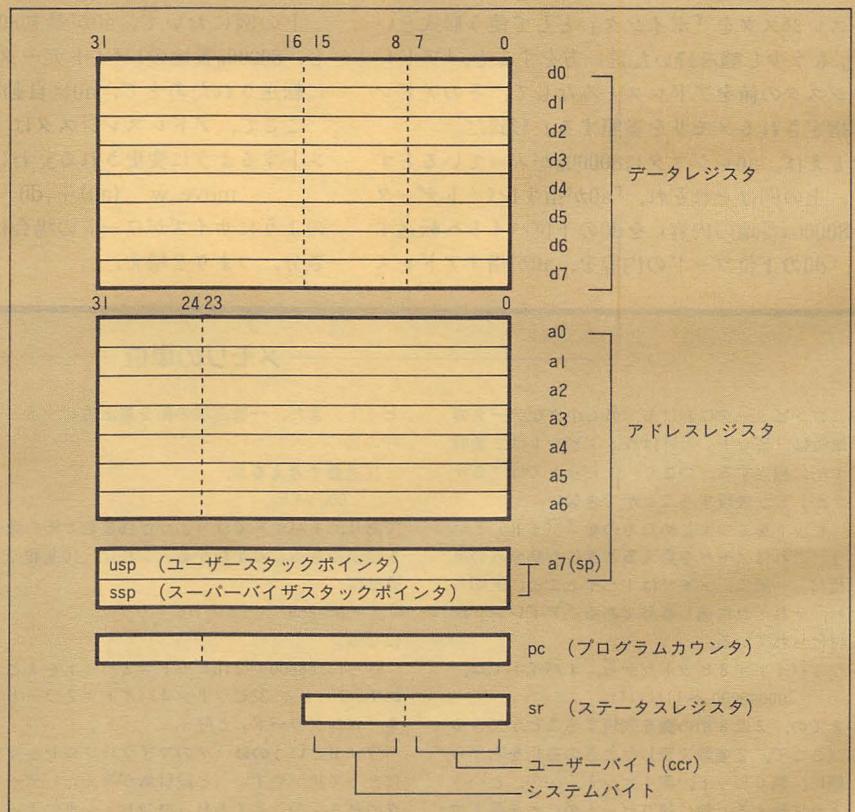 31 16 15 8 7 0
d0
d1
d2
d3
d4
d5
d6
d7
データレジスタ
31 24 23 0
a0
a1
a2
a3
a4
a5
a6
アドレスレジスタ
usp （ユーザースタックポインタ）
ssp （スーパーバイザスタックポインタ）
a7(sp)
pc （プログラムカウンタ）
sr （ステータスレジスタ）
ユーザーバイト(ccr)
システムバイト